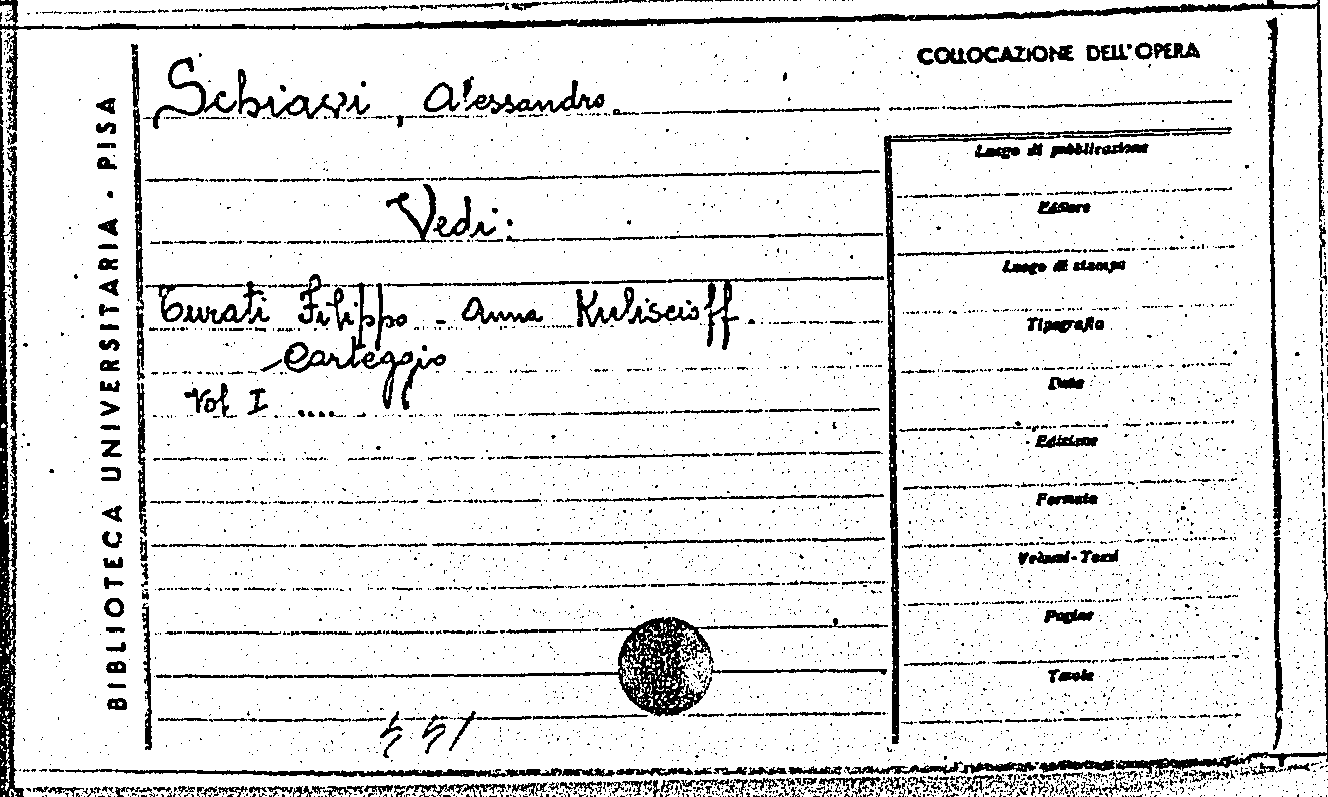 COLLOCAZIONE DELL'OPERA
BIBLIOTECA UNIVERSITARIA - PISA
Schiavi, Alessandro.
Vedi:
Turati Filippo - Anna Kuliscioff.
Carteggio
Vol I ....
Luogo di pubblicazione
Editore
Luogo di stampa
Tipografia
Data
Edizione
Formato
Volumi - Tomi
Pagine
Tavole